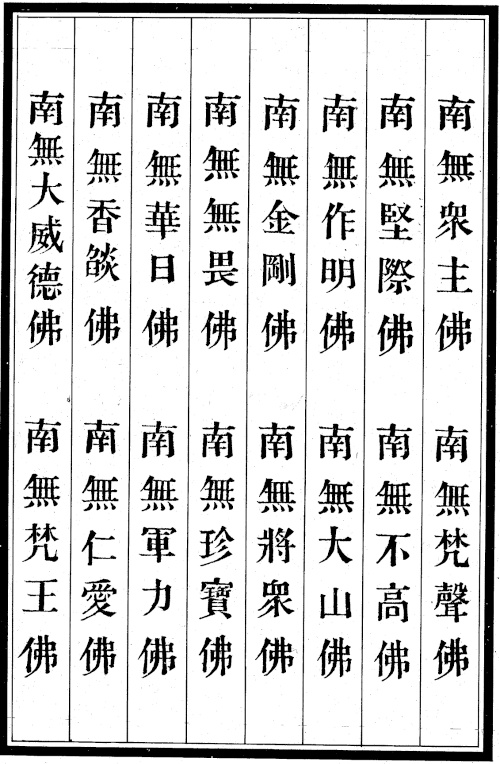 南無衆主佛　南無梵聲佛
南無堅際佛　南無不高佛
南無作明佛　南無大山佛
南無金剛佛　南無將衆佛
南無無畏佛　南無珍寶佛
南無華日佛　南無軍力佛
南無香燄佛　南無仁愛佛
南無大威德佛　南無梵王佛